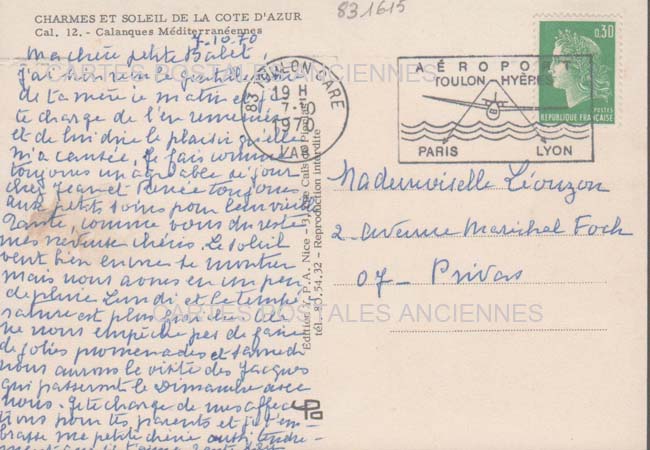 83 1615
CHARMES ET SOLEIL DE LA COTE D'AZUR
Cal. 12. - Calanques Méditerranéennes
7.10.70
Ma chère petite Babet,
j'ai bien reçu la gentille
de ta mère ce matin et je
te charge de l'en remercier
et de lui dire le plaisir qu'elle
m'a causée. Je fais comme
toujours un agréable séjour
chez Jean et Renée toujours
aux petits soins pour leur vieille
tante, comme vous du reste
mes neveux chéris. Le soleil
veut bien encore se montrer
mais nous avons eu un peu
de pluie Lundi et la tempé
rature est plus fraîche. Cela
ne nous empêche pas de faire
de jolies promenades et samedi
nous aurons la visite des Jacques
qui passeront le Dimanche avec
nous. Je te charge de mes affec
tions pour tes parents et je t'em-
brasse ma petite chérie aussi tendre-
ment que je t'aime
83 TOULON GARE
19 H
7-10
1970
VAR
AÉROPORT
TOULON-HYÈRES
PARIS
LYON
0,30
POSTES
REPUBLIQUE FRANÇAISE
Mademoiselle Léouzon
2 avenue Maréchal Foch
07 - Privas
Reproduction interdite
tél. 83.54.32
CARTES POSTALES ANCIENNES
CARTES POSTALES ANCIENNES